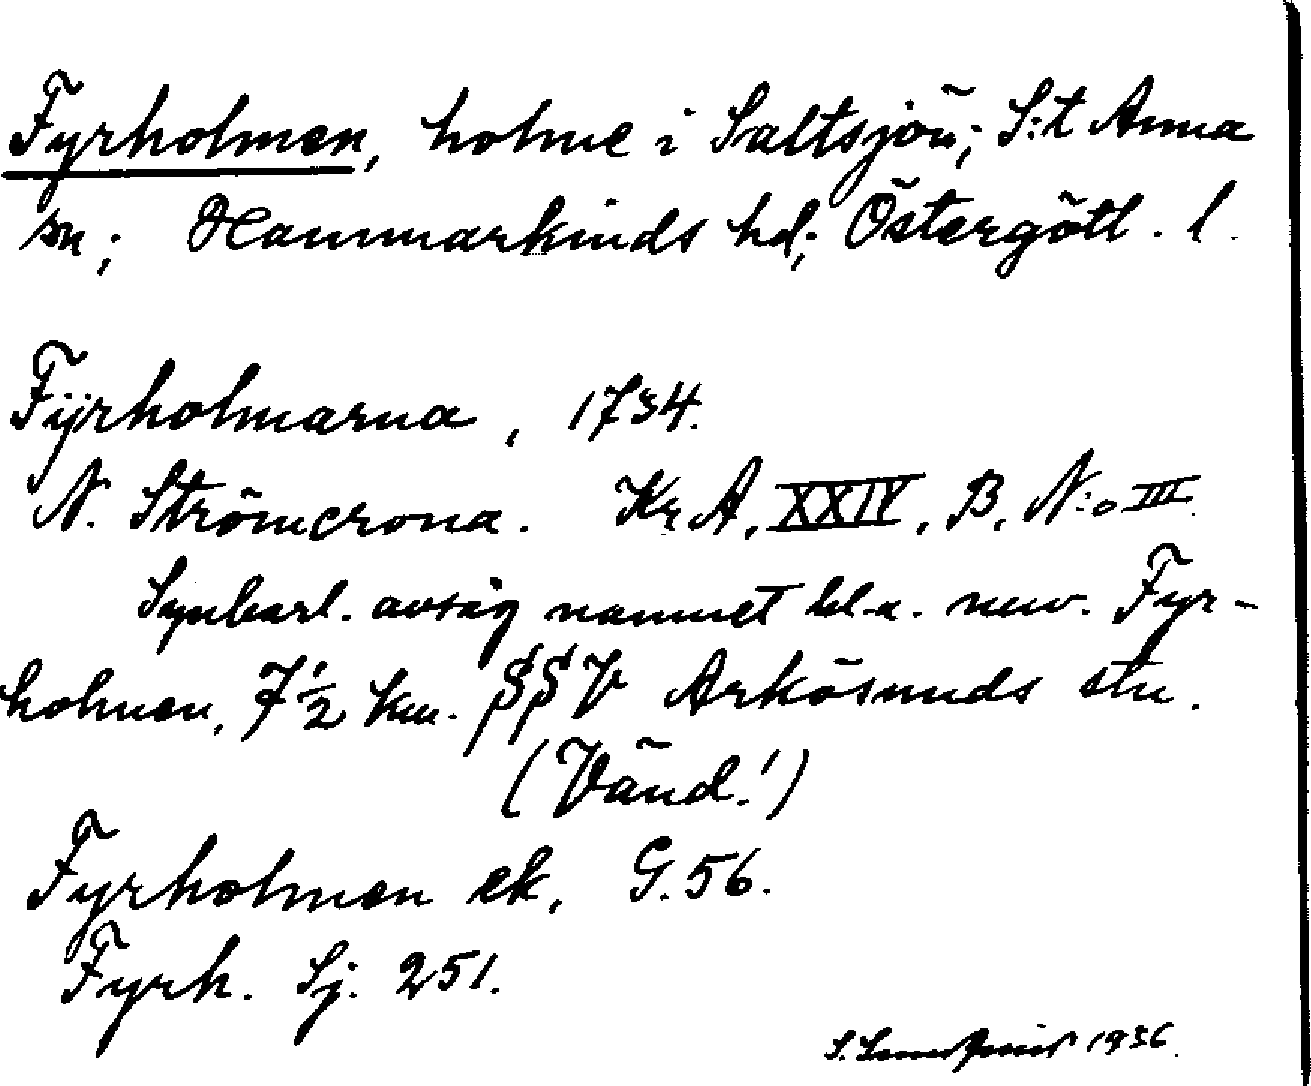 Fyrholmen, holme i Saltsjön; S:t Anna
sn; Hammarkinds hd; Östergötl. l.
Fÿrholmarna, 1734.
N. Strömcrona. Kr A, XXIV, B, N:o III.
Synbarl. avsåg namnet bl.a. nuv. Fyr-
holmen, 7 1/2 km. SSV Arkösunds stn.
(Vänd!)
Fyrholmen ek, G. 56.
Fyrh. Sj. 251.
S. 1936.